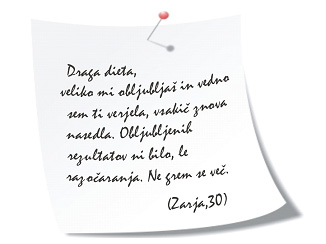 Draga dieta,
veliko mi obljubljaš in vedno
sem ti verjela, vsakič znova
nasedla. Obljubljenih
rezultatov ni bilo, le
razočaranja. Ne grem se več.
(Zarja,30)